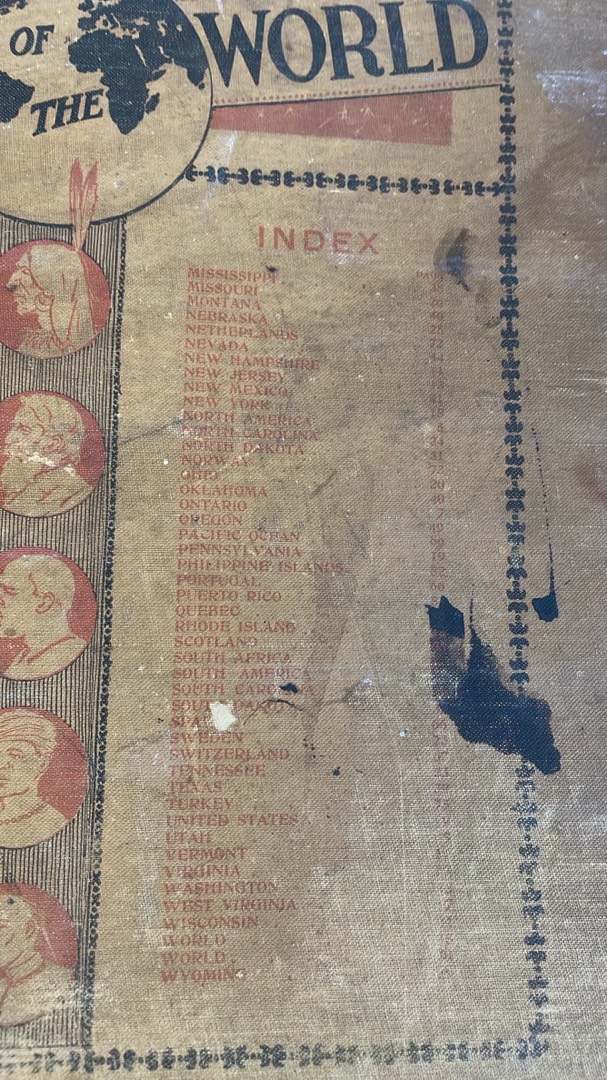 OF
WORLD
THE
INDEX
MISSISSIPPI
MISSOURI
MONTANA
NEBRASKA
NETHERLANDS
NEVADA
NEW HAMPSHIRE
NEW JERSEY
NEW MEXICO
NEW YORK
NORTH AMERICA
NORTH CAROLINA
NORTH DAKOTA
NORWAY
OHIO
OKLAHOMA
ONTARIO
OREGON
PACIFIC OCEAN
PENNSYLVANIA
PHILIPPINE ISLANDS
PORTUGAL
PUERTO RICO
QUEBEC
RHODE ISLAND
SCOTLAND
SOUTH AFRICA
SOUTH AMERICA
SOUTH CAROLINA
SOUTH DAKOTA
SPAIN
SWEDEN
SWITZERLAND
TENNESSEE
TEXAS
TURKEY
UNITED STATES
UTAH
VERMONT
VIRGINIA
WASHINGTON
WEST VIRGINIA
WISCONSIN
WORLD
WORLD
WYOMING